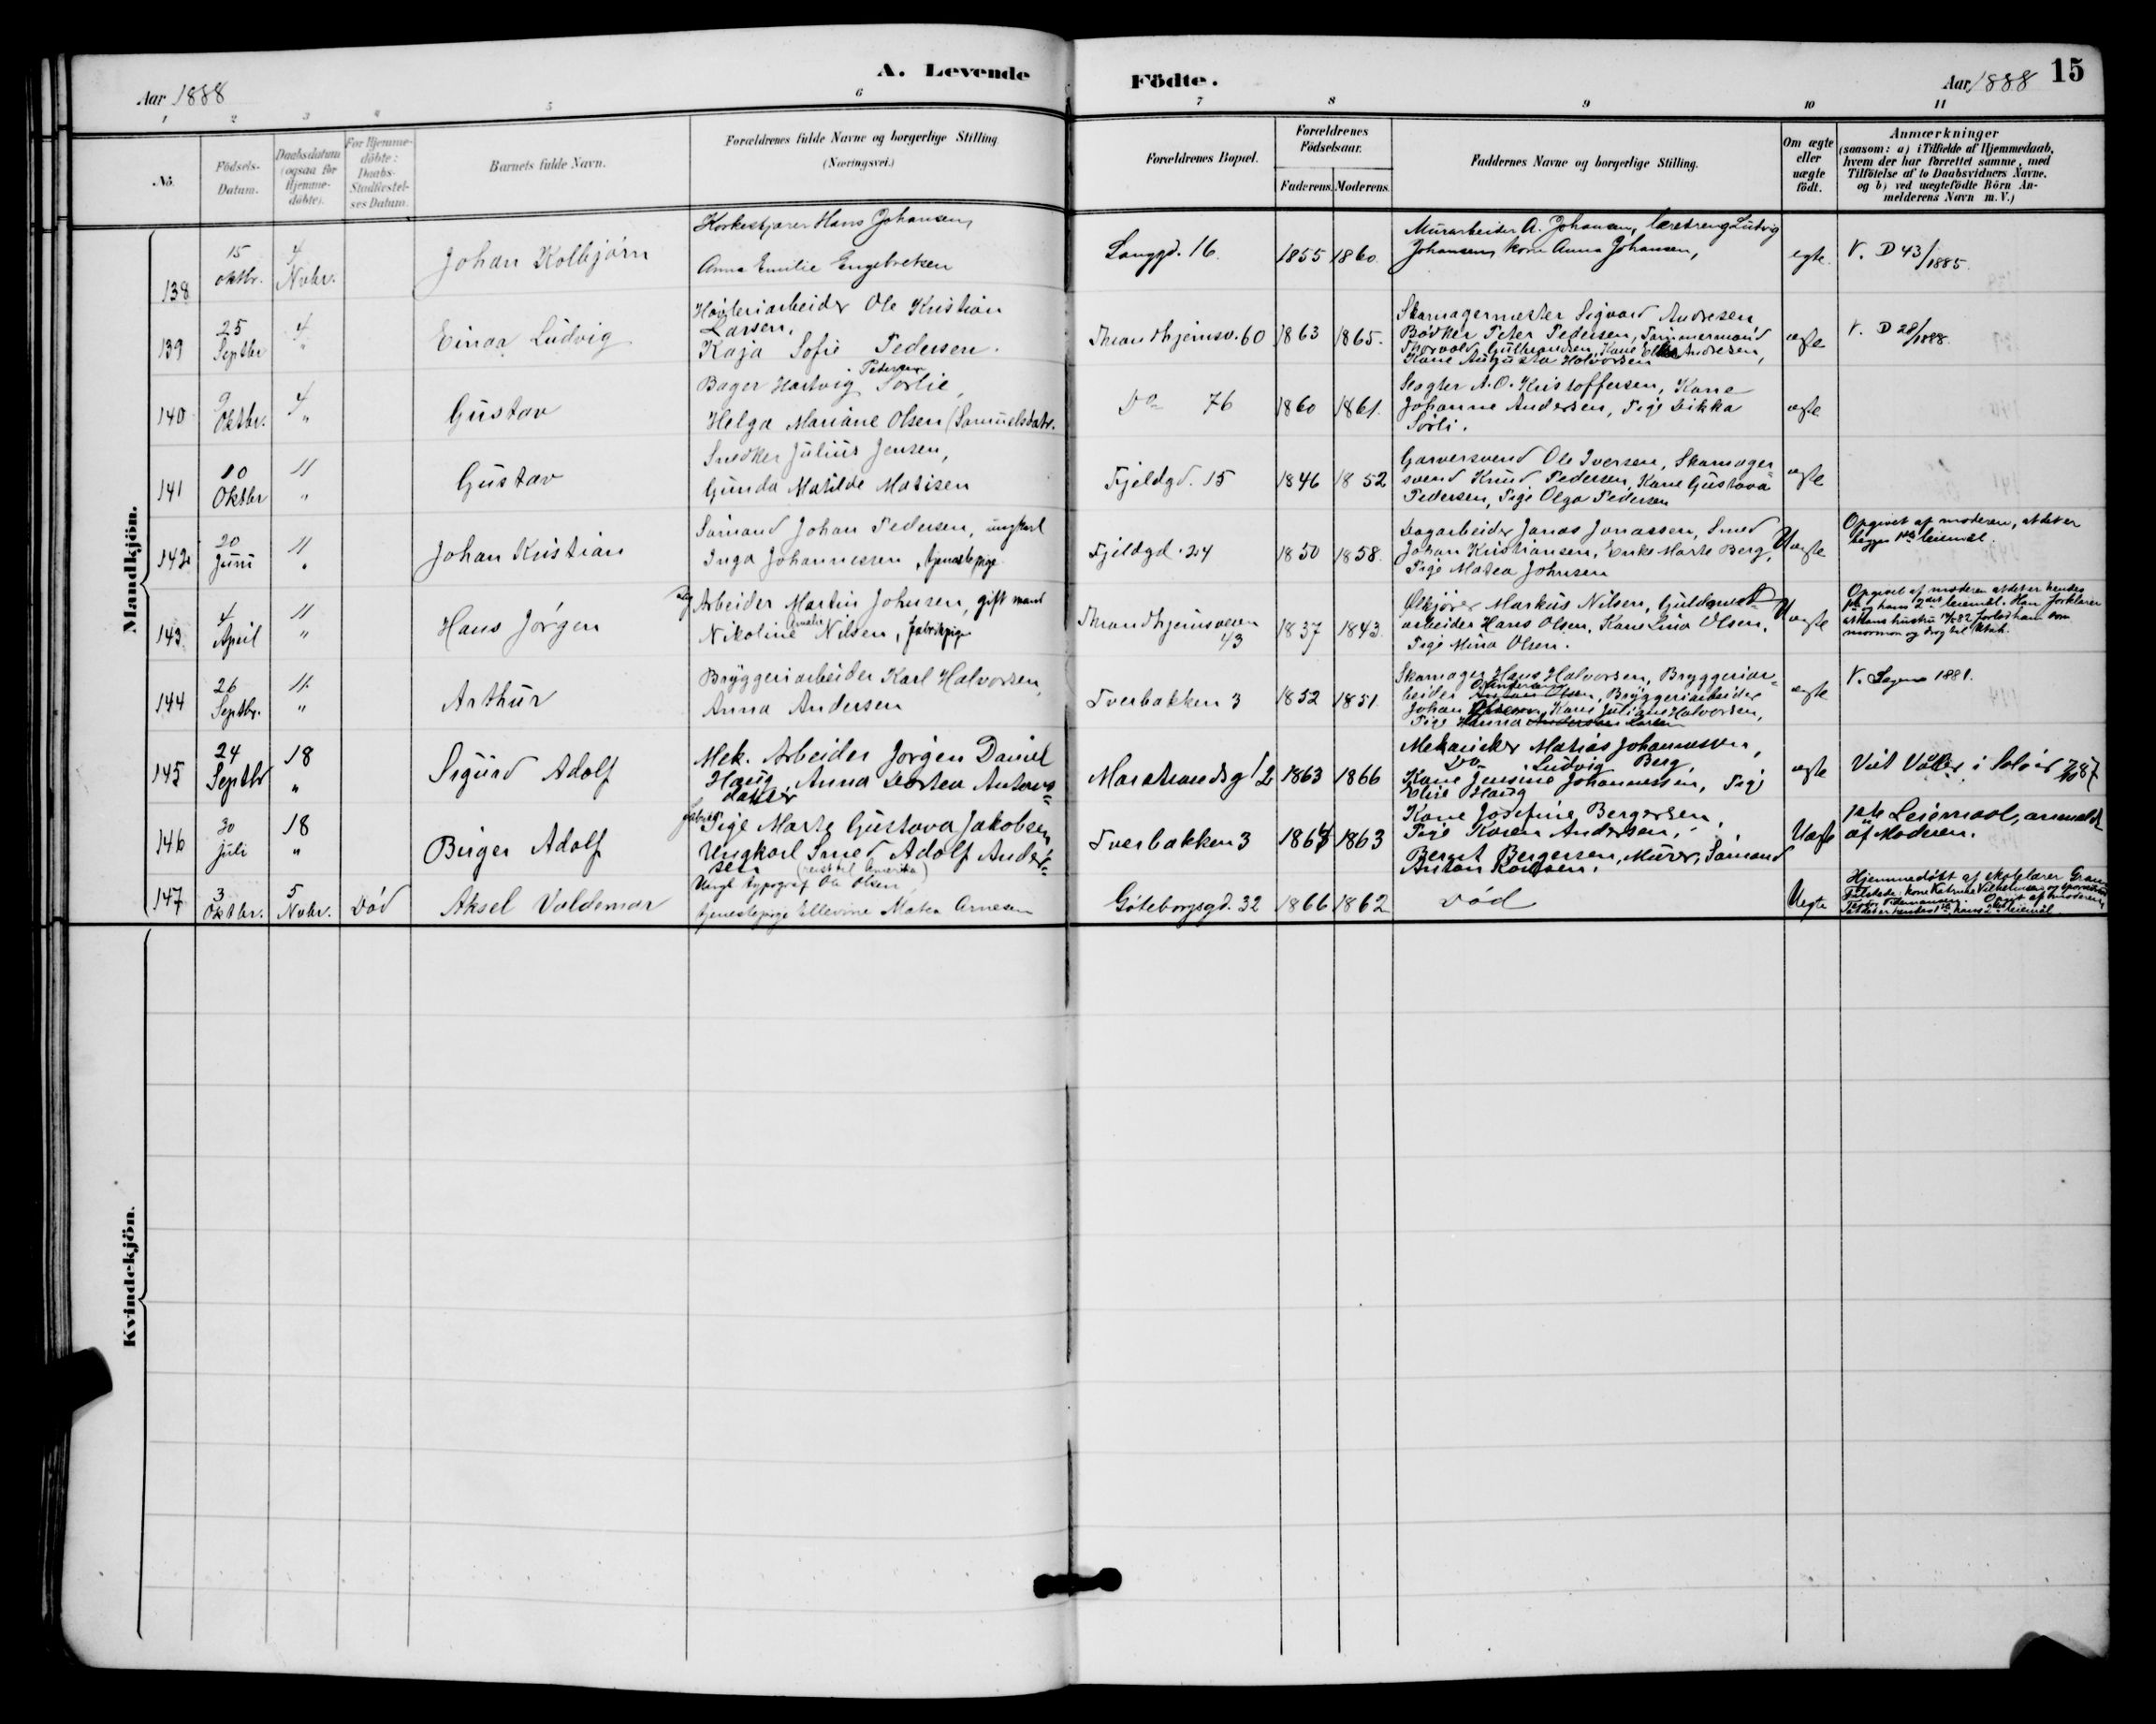 A. Levende
Födte.
15
Aar 1888
Aar 1888
1 2 3 4 5 6 7 8 9 10 11
No.
Födsels-
Datum.
Daabsdatum
(ogsaa for
Hjemme-
döbte).
For Hjemme-
döbte:
Daabs-
Stadfæstel-
ses Datum.
Barnets fulde Navn.
Forældrenes fulde Navne og borgerlige Stilling
(Næringsvei.)
Forældrenes Bopæl.
Forældrenes
Födselsaar.
Faderens. Moderens.
Faddernes Navne og borgerlige Stilling.
Om ægte
eller
uægte
födt.
Anmærkninger
(saasom: a) i Tilfælde af Hjemmedaab,
hvem der har forrettet samme, med
Tilföielse af to Daabsvidners Navne,
og b) ved uægtefödte Börn An-
melderens Navn m. V.)
Mandkjön.
138
15
oktbr.
4
Nvbr.
Johan Kolbjørn
Korkeskjærer Hans Johansen,
Anna Emilie Engebretsen
Langgd. 16.
1855 1860
Murarbeider A. Johansen, læredreng Ludvig
Johansen, kone Anna Johansen,
egte.
V. D 43/1885.
139
25
Septbr
4
"
Einar Ludvig
Høvleriarbeider Ole Kristian
Larsen,
Kaja Sofie Pedersen.
Throndhjemsv. 60
1863 1865.
Skomagermester Sigvard Andresen
Bødker Peter Pedersen, Tømmermand
Thorvald Gulbrandsen, Kone Andresen,
Kone Augusta Halvorsen
ægte
V. D 28/1888.
140
9
Oktbr.
4
"
Gustav
Pedersen
Bager Hartvig Sørlie,
Helga Mariane Olsen (Samuelsdatr.
Do 76
1860 1861.
Slagter A. O. Kristoffersen, Kone
Johanne Andersen, Pige Dikka
Sørli.
ægte
141
10
Oktbr
11
"
Gustav
Snedker Julius Jensen,
Gunda Matilde Matisen
Fjeldgd. 15
1846 1852
Garversvend Ole Iversen, Skomager=
svend Knud Pedersen, Kone Gustava
Pedersen, Pige Olga Pedersen
ægte
142
20
Juni
11
"
Johan Kristian
Sømand Johan Pedersen, ungkarl
Inga Johannessen, tjenestepige
Fjeldgd. 24
1850 1858.
Dagarbeider Jonas Jonassen, Smed
Johan Kristiansen, Enke Marte Berg,
Pige Matea Johnsen
Uægte
Opgivet af moderen, at det er
begges 1ste leiemål.
143
4
April
11
"
Hans Jørgen
Arbeider Martin Johnsen, gift mand
Amalie
Nikoline Nilsen, fabrikpige
Throndhjemsveien
43
1837 1843.
Ølkjører Markus Nilsen, Guldlist-
arbeider Hans Olsen, Kone Lina Olsen,
Pige Mina Olsen.
Uægte
Opgivet af moderen at det er hendes
og hans 2det leiemål. Han forklarer
at hans hustru forlod ham som
mormon og drog til Utah.
144
26
Septbr.
11
"
Arthur
Bryggeriarbeider Karl Halvorsen,
Anna Andersen
Tverbakken 3
1852 1851.
Skomager Hans Halvorsen, Bryggeriar=
beider Olsen, Bryggeriarbeider
Johan Kone Juliane Halvorsen,
Pige Hanna Andersen Larsen
ægte
V. Sagene 1881.
145
24
Septbr
18
"
Sigurd Adolf
Mek. Arbeider Jørgen Daniel
Haug, Anna Dortea Antons=
datter
Marstrandsg 12
1863 1866
Mekaniker Matias Johannessen,
Do Ludvig Berg,
Kone Jensine Johannessen, Pige
Elise Haug
ægte
Viet Våler i Solør
146
30
Juli
18
"
Birger Adolf
Pige Marte Gustava Jakobsen
Ungkarl Smed Adolf Ander=
sen (reist til Amerika)
Tverbakken 3
1864 1863
Kone Josefine Bergersen,
Pige Karen Andersen,
Bernt Bergersen, Murer, Sømand
Anton
Uægte
1ste Leiemaal, anmeldt
af Moderen.
147
3
Oktbr.
5
Nvbr.
Død
Aksel Valdemar
Ungk. typograf Ole Olsen,
tjenestepige Ellevine Matea Arnesen
Göteborgsgd. 32
1866 1862
Død
Uegte
Hjemmedøbt af skolelærer Gran
Tilstede: kone Katrine Vilhelmsen og
Opgit af moderen,
at det er hendes 1ste hans 2det leiemål
Kvindekjön.